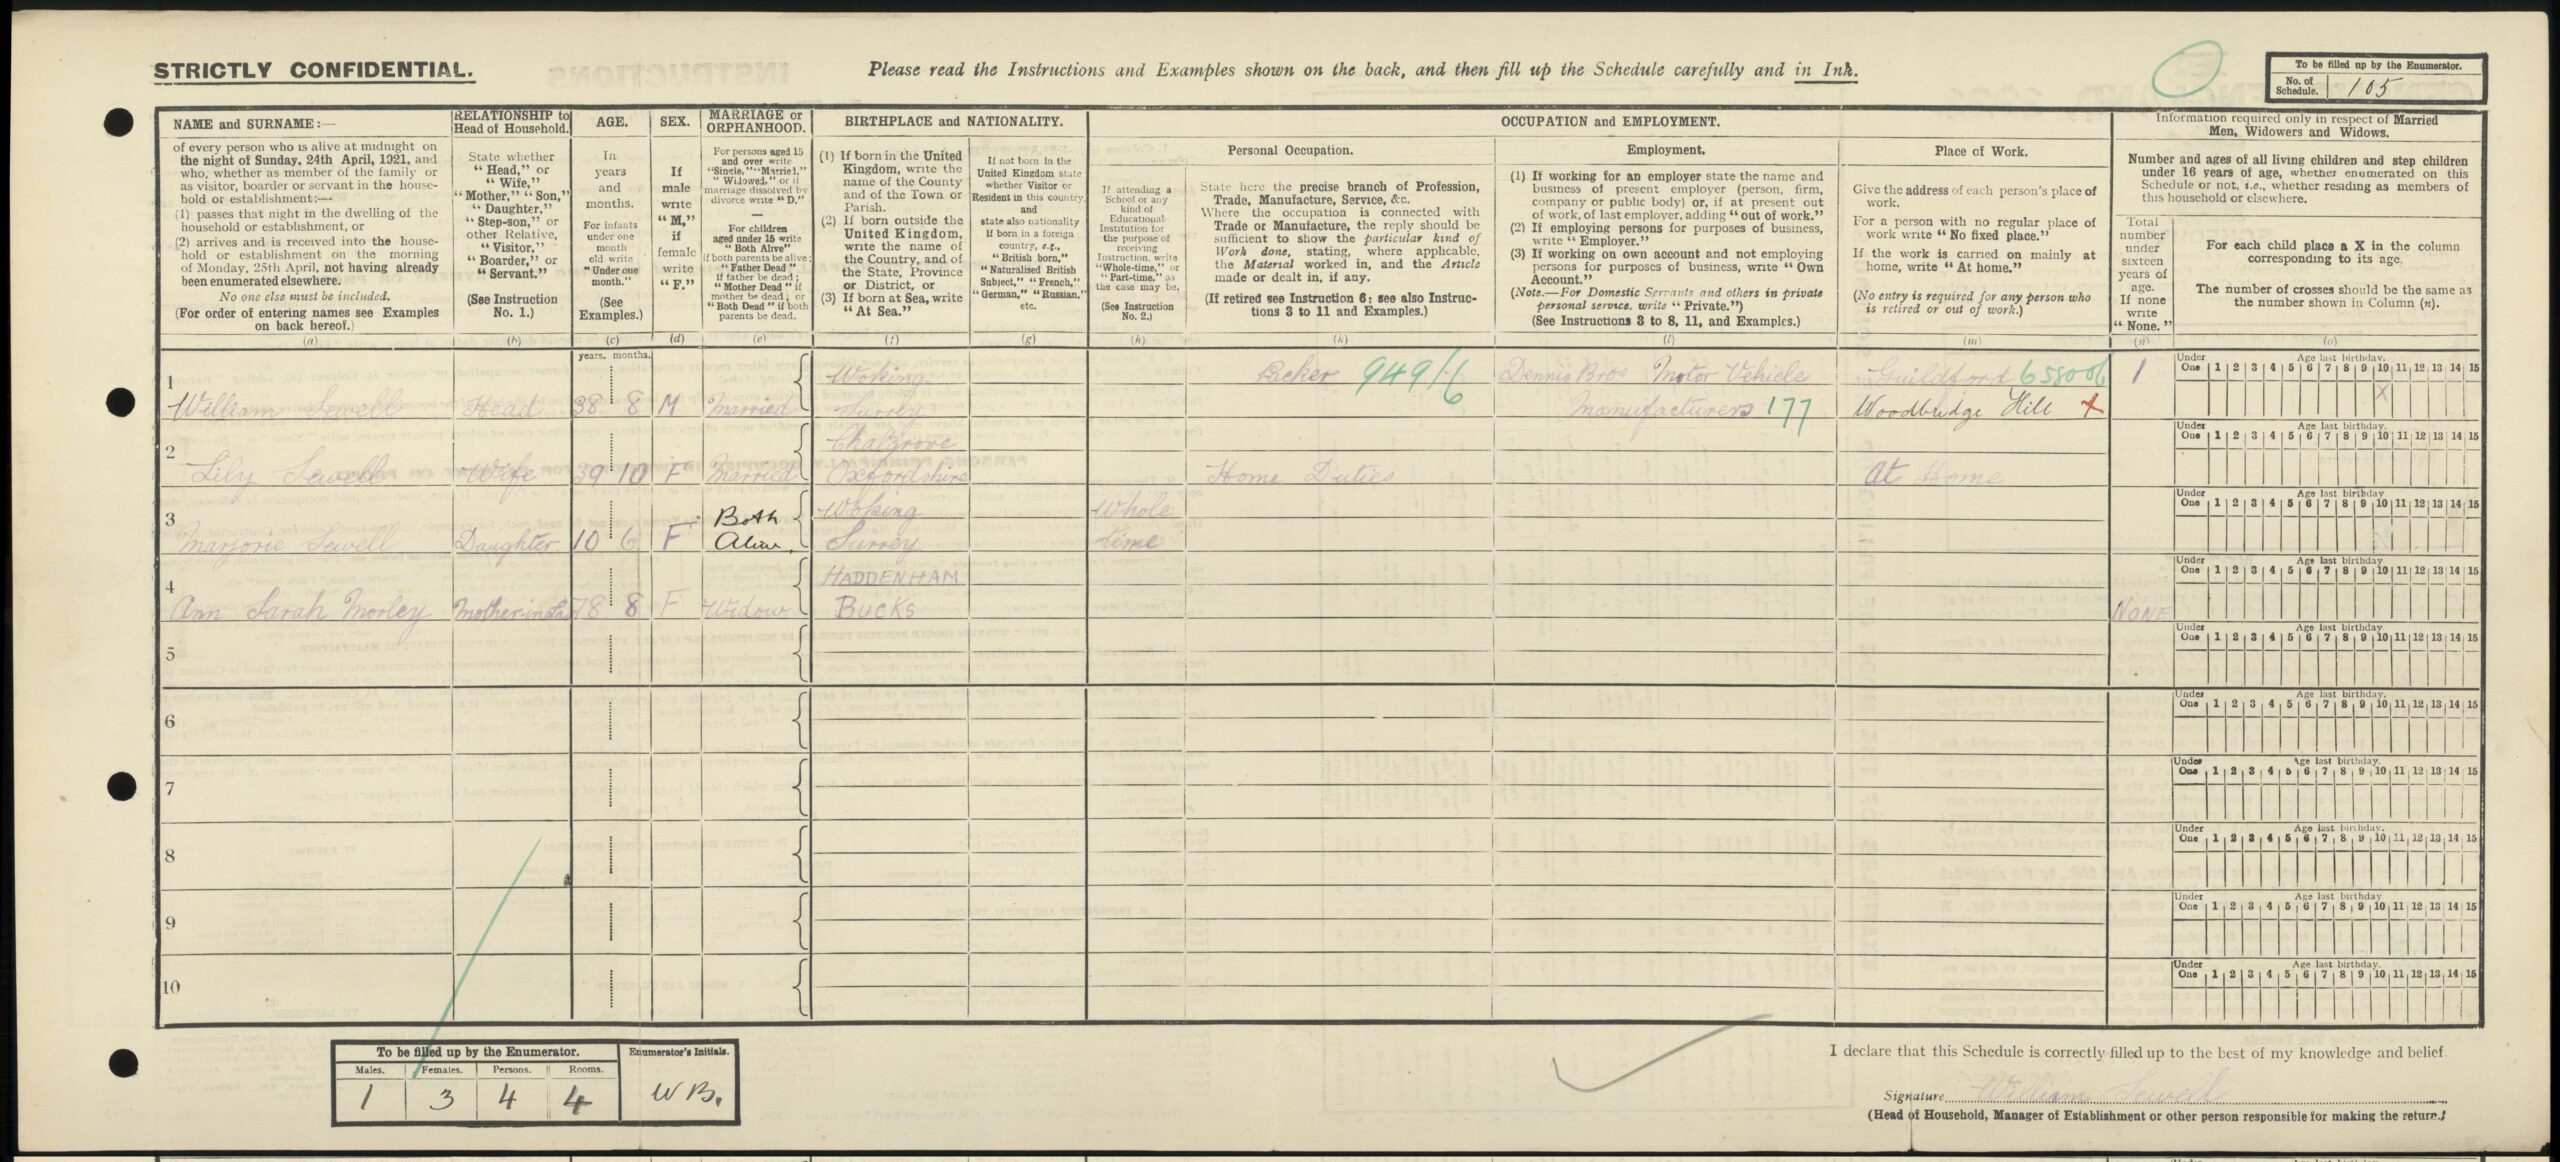 STRICTLY CONFIDENTIAL.
Please read the Instructions and Examples shown on the back, and then fill up the Schedule carefully and in Ink.
To be filled up by the Enumerator.
No. of Schedule. 105
NAME and SURNAME:—
of every person who is alive at midnight on
the night of Sunday, 24th April, 1921, and
who, whether as member of the family or
as visitor, boarder or servant in the house-
hold or establishment:—
(1) passes that night in the dwelling of the
household or establishment, or
(2) arrives and is received into the house-
hold or establishment on the morning
of Monday, 25th April, not having already
been enumerated elsewhere.
No one else must be included.
(For order of entering names see Examples
on back hereof.)
(a)
RELATIONSHIP to
Head of Household.
State whether
"Head," or
"Wife,"
"Mother," "Son,"
"Daughter,"
"Step-son," or
other Relative,
"Visitor,"
"Boarder," or
"Servant."
(See Instruction
No. 1.)
(b)
AGE.
In
years
and
months.
For infants
under one
month
old write
"Under one
month."
(See
Examples.)
(c)
years. months.
SEX.
If
male
write
"M,"
if
female
write
"F."
(d)
MARRIAGE or
ORPHANHOOD.
For persons aged 15
and over write
"Single," "Married,"
"Widowed," or if
marriage dissolved by
divorce write "D."
—
For children
aged under 15 write
"Both Alive"
if both parents be alive;
"Father Dead"
if father be dead;
"Mother Dead" if
mother be dead; or
"Both Dead" if both
parents be dead.
(e)
BIRTHPLACE and NATIONALITY.
(1) If born in the United
Kingdom, write the
name of the County
and of the Town or
Parish.
(2) If born outside the
United Kingdom,
write the name of
the Country, and of
the State, Province
or District, or
(3) If born at Sea, write
"At Sea."
(f)
If not born in the
United Kingdom state
whether Visitor or
Resident in this country,
and
state also nationality
if born in a foreign
country, e.g.,
"British born,"
"Naturalised British
Subject," "French,"
"German," "Russian,"
etc.
(g)
OCCUPATION and EMPLOYMENT.
If attending a
School or any
kind of
Educational
Institution for
the purpose of
receiving
Instruction, write
"Whole-time," or
"Part-time," as
the case may be.
(See Instruction
No. 2.)
(h)
Personal Occupation.
State here the precise branch of Profession,
Trade, Manufacture, Service, &c.
Where the occupation is connected with
Trade or Manufacture, the reply should be
sufficient to show the particular kind of
Work done, stating, where applicable,
the Material worked in, and the Article
made or dealt in, if any.
(If retired see Instruction 6; see also Instruc-
tions 3 to 11 and Examples.)
(k)
Employment.
(1) If working for an employer state the name and
business of present employer (person, firm,
company or public body) or, if at present out
of work, of last employer, adding "out of work."
(2) If employing persons for purposes of business,
write "Employer."
(3) If working on own account and not employing
persons for purposes of business, write "Own
Account."
(Note.—For Domestic Servants and others in private
personal service, write "Private.")
(See Instructions 3 to 8, 11, and Examples.)
(l)
Place of Work.
Give the address of each person's place of
work.
For a person with no regular place of
work write "No fixed place."
If the work is carried on mainly at
home, write "At home."
(No entry is required for any person who
is retired or out of work.)
(m)
Information required only in respect of Married
Men, Widowers and Widows.
Number and ages of all living children and step children
under 16 years of age, whether enumerated on this
Schedule or not, i.e., whether residing as members of
this household or elsewhere.
Total
number
under
sixteen
years of
age.
If none
write
"None."
(n)
For each child place a X in the column
corresponding to its age.
The number of crosses should be the same as
the number shown in Column (n).
(o)
Under One Age last birthday. 1 2 3 4 5 6 7 8 9 10 11 12 13 14 15
1 Woking Packer 949/6 Dennis Bros Motor Vehicle Guildford 658006 1
William Sewell Head 38 8 M Married Surrey Manufacturers 177 Woodbridge Hill X X
Under One Age last birthday. 1 2 3 4 5 6 7 8 9 10 11 12 13 14 15
2 Chalgrove
Lily Sewell Wife 39 10 F Married Oxfordshire Home Duties At Home
Under One Age last birthday 1 2 3 4 5 6 7 8 9 10 11 12 13 14 15
3 Both Woking Whole
Marjorie Sewell Daughter 10 6 F Alive. Surrey time
Under One Age last birthday. 1 2 3 4 5 6 7 8 9 10 11 12 13 14 15
4 HADDENHAM
Ann Sarah Morley Mother-in-Law 78 8 F Widow BUCKS NONE
Under One Age last birthday 1 2 3 4 5 6 7 8 9 10 11 12 13 14 15
5
Under One Age last birthday. 1 2 3 4 5 6 7 8 9 10 11 12 13 14 15
6
Under One Age last birthday. 1 2 3 4 5 6 7 8 9 10 11 12 13 14 15
7
Under One Age last birthday. 1 2 3 4 5 6 7 8 9 10 11 12 13 14 15
8
Under One Age last birthday. 1 2 3 4 5 6 7 8 9 10 11 12 13 14 15
9
Under One Age last birthday. 1 2 3 4 5 6 7 8 9 10 11 12 13 14 15
10
To be filled up by the Enumerator.
Males. Females. Persons. Rooms.
1 3 4 4
Enumerator's Initials.
WB.
I declare that this Schedule is correctly filled up to the best of my knowledge and belief.
Signature William Sewell
(Head of Household, Manager of Establishment or other person responsible for making the return.)